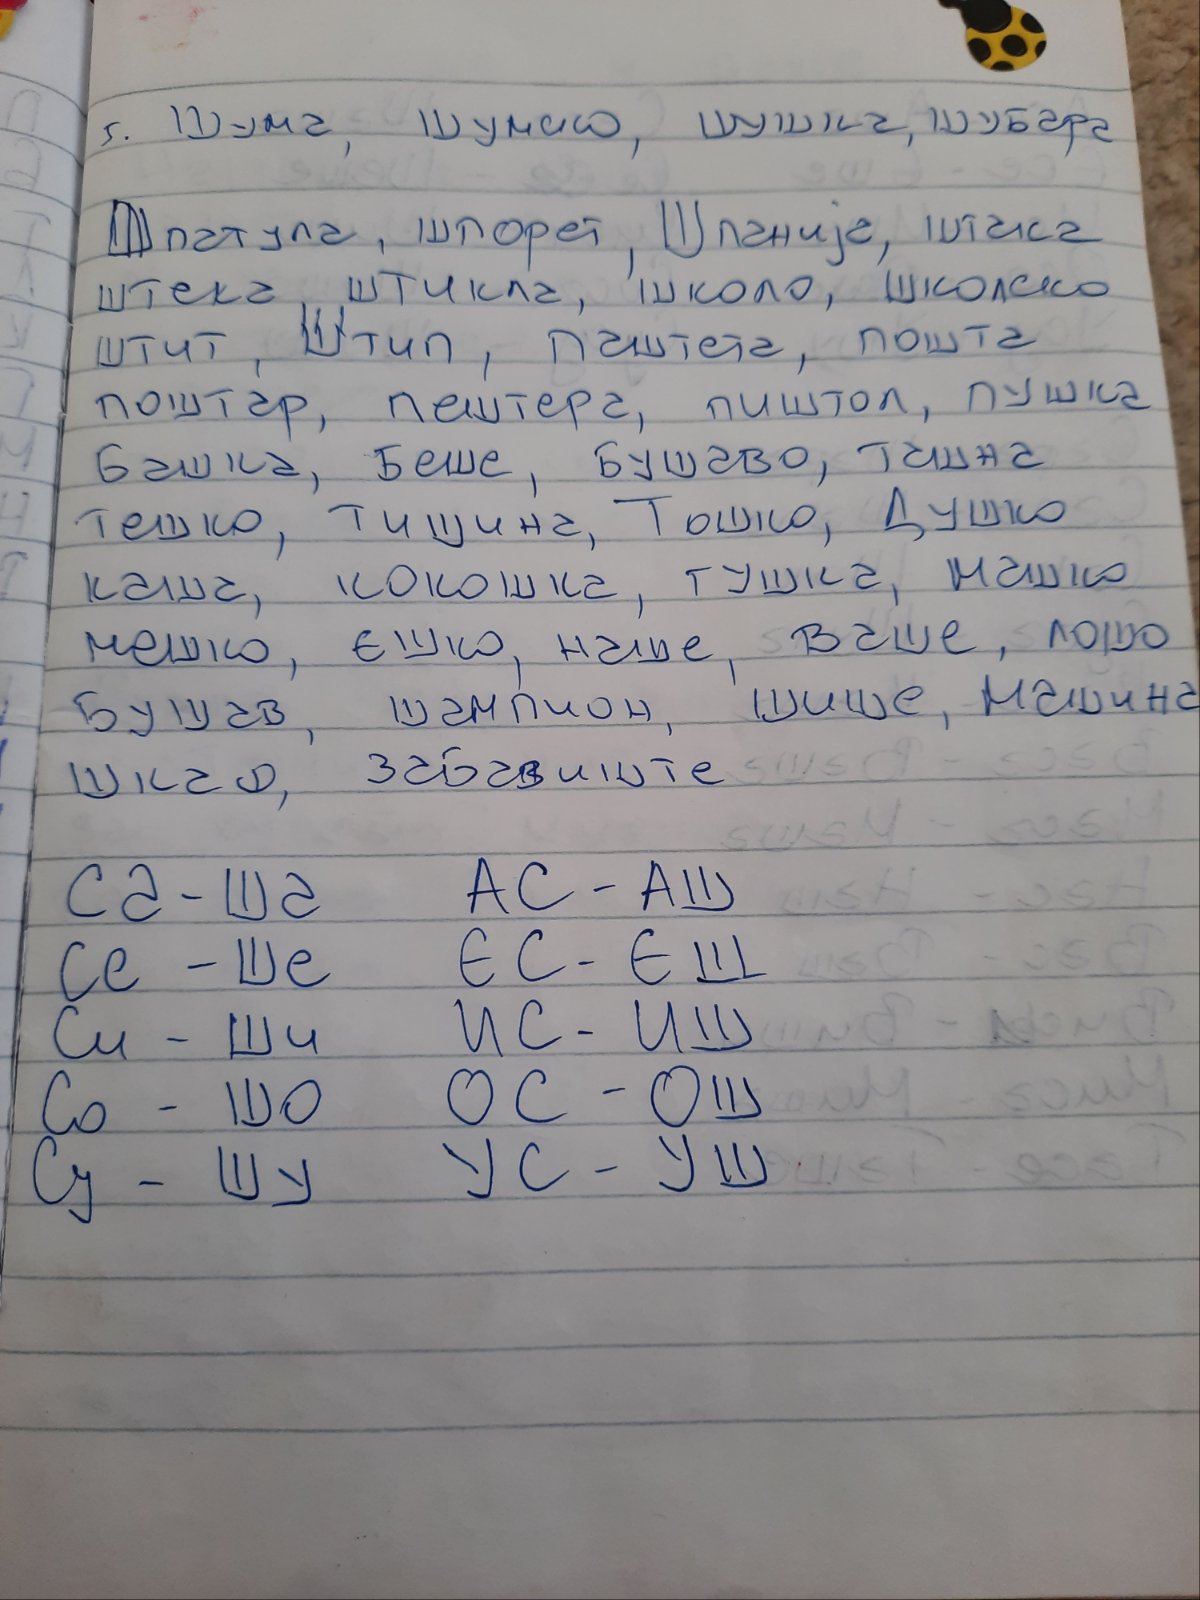 5. Шума, шумско, шушка, шубара
Шпатула, шпорет, Шпанија, штака
штека, штикла, школо, школско
штит, Штип, паштета, пошта
поштар, пештера, пиштол, пушка
башка, беше, бушаво, ташна
тешко, тишина, Тошко, Душко
каша, кокошка, тушка, машко
мешко, ешко, наше, ваше, лошо
бушав, шампион, шише, машина
шкаф, забавиште
Са - Ша АС - АШ
Се - Ше ЕС - ЕШ
Си - Ши ИС - ИШ
Со - Шо ОС - ОШ
Су - Шу УС - УШ